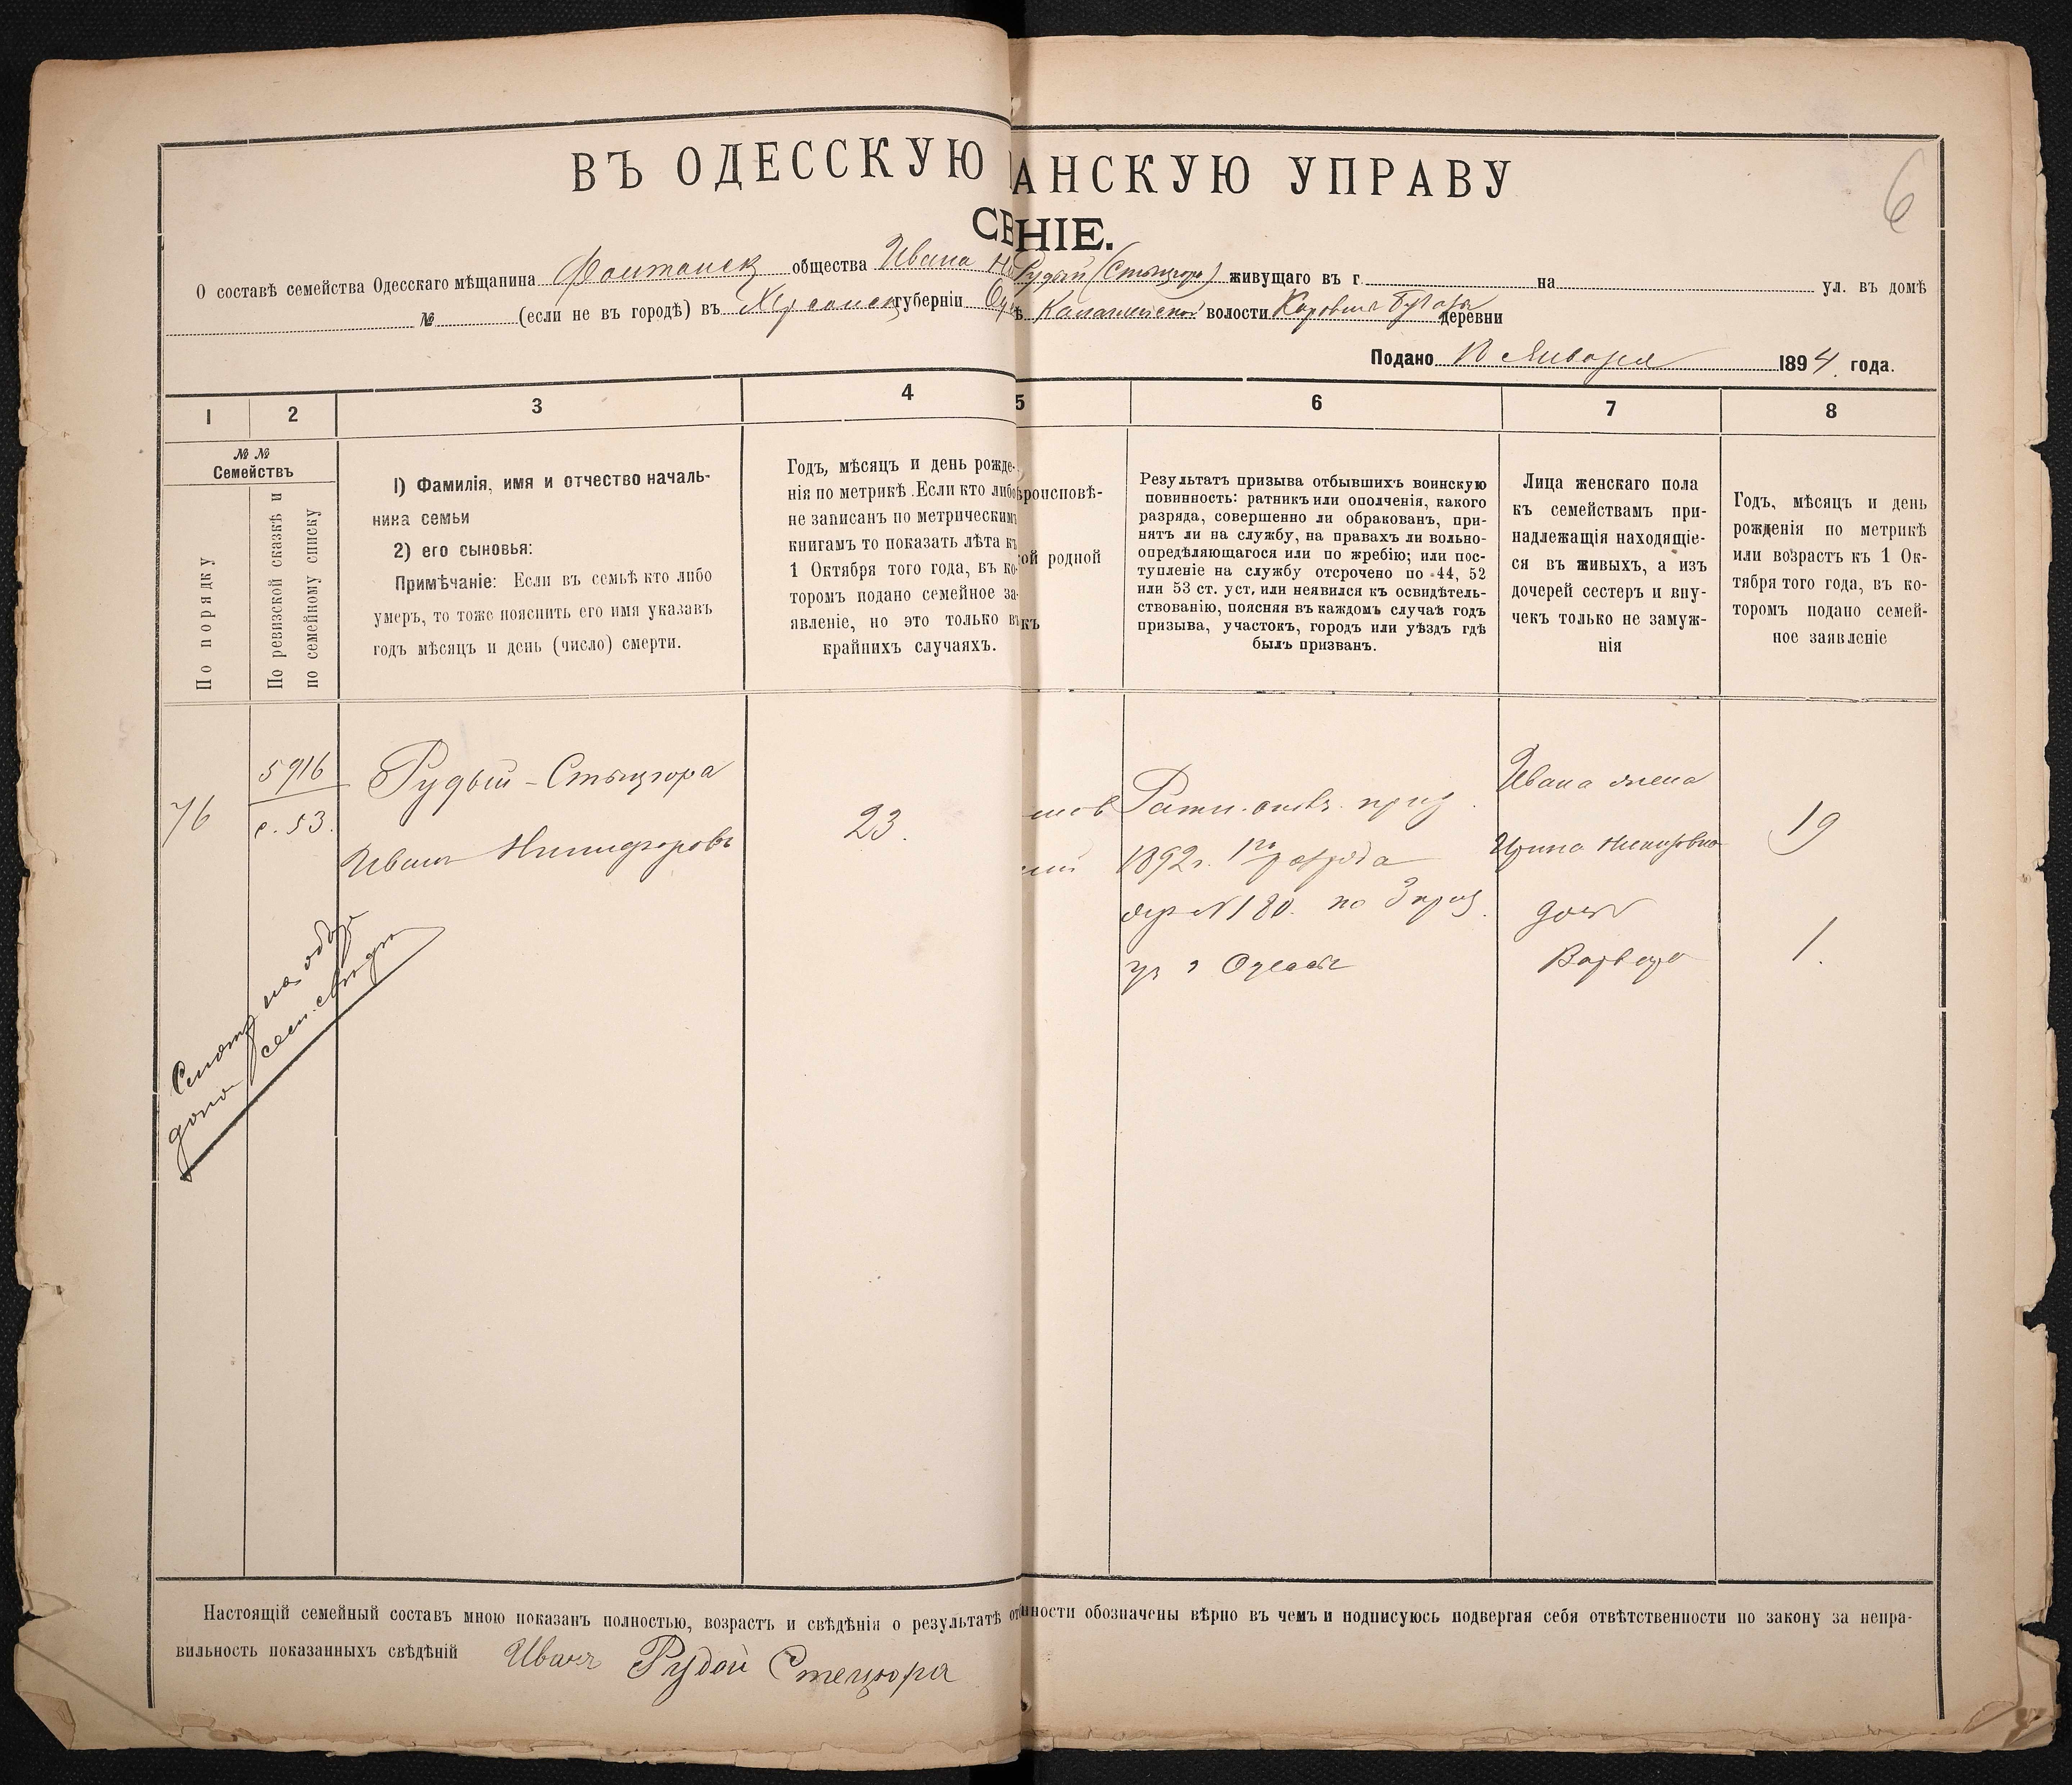 6
ВЪ ОДЕССКУЮ АНСКУЮ УПРАВУ
СЕ НІЕ.
О составѣ семейства Одесскаго мѣщанина Фонтанск общества Ивана Ни Рудый (Стыцгора) живущаго въ г. на ул. въ домѣ
№ (если не въ городѣ) въ Херсонск губерніи Оде ѣ волости деревни
Подано Января 1894 года.
1 2 3 4 5 6 7 8
№ №
Семействъ
По порядку
По ревизской сказкѣ и
по семейному списку
1) Фамилія, имя и отчество началь-
ника семьи
2) его сыновья:
Примѣчаніе: Если въ семьѣ кто либо
умеръ, то тоже пояснить его имя указавъ
годъ мѣсяцъ и день (число) смерти.
Годъ, мѣсяцъ и день рожде-
нія по метрикѣ. Если кто либо
не записанъ по метрическимъ
книгамъ то показать лѣта къ
1 Октября того года, въ ко-
торомъ подано семейное за-
явленіе, но это только въ
крайнихъ случаяхъ.
ѣроисповѣ-
ой родной
къ
Результатъ призыва отбывшихъ воинскую
повинность: ратникъ или ополченія, какого
разряда, совершенно ли обракованъ, при-
нятъ ли на службу, на правахъ ли вольно-
опредѣляющагося или по жребію; или пос-
тупленіе на службу отсрочено по 44, 52
или 53 ст. уст, или неявился къ освидѣтель-
ствованію, поясняя въ каждомъ случаѣ годъ
призыва, участокъ, городъ или уѣздъ гдѣ
былъ призванъ.
Лица женскаго пола
къ семействамъ при-
надлежащія находящіе-
ся въ живыхъ, а изъ
дочерей сестеръ и вну-
чекъ только не замуж-
нія
Годъ, мѣсяцъ и день
рожденія по метрикѣ
или возрастъ къ 1 Ок-
тября того года, въ ко-
торомъ подано семей-
ное заявленіе
76
5916
с. 53.
Рудый - Стыцгора
Иванъ Никифоровъ
23.
Ратн. опол. приз.
1892 г. 1го разряда
жер № 180. по 3 приз.
уч г Одессы
Ивана жена
Ирина Никифоровна
19
дочь
Варвара
1.
Смотр на обор
допол сем. свѣд
Настоящій семейный составъ мною показанъ полностью, возрастъ и свѣдѣнія о результатѣ от нности обозначены вѣрно въ чемъ и подписуюсь подвергая себя отвѣтственности по закону за непра-
вильность показанныхъ свѣдѣній Иванъ Рудой Стецюра